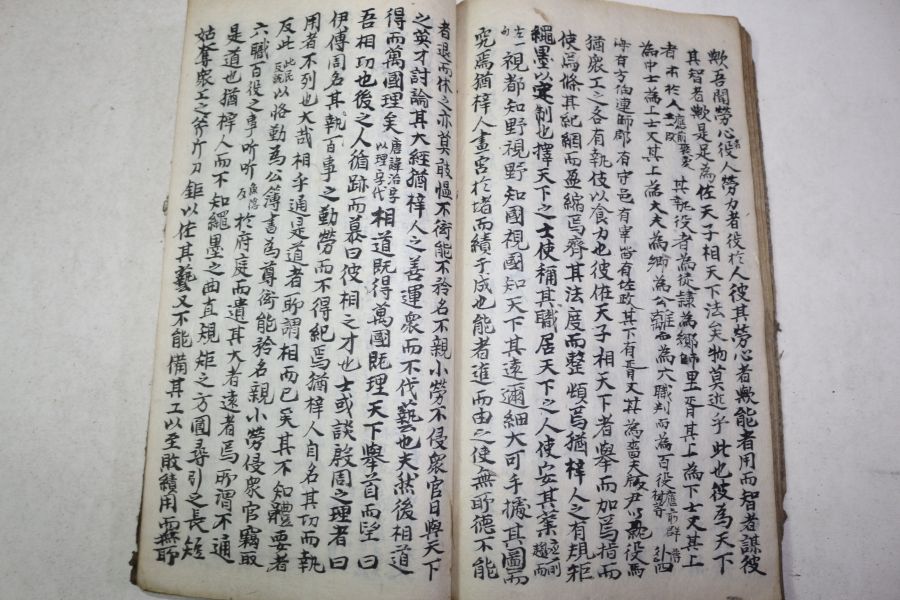 歟吾聞勞心者役人勞力者役於人彼其勞心者歟能者用而智者謀彼
其智者歟是足為佐天子相天下法矣物莫近乎此也彼為天下
者本於人其執役者為徒隸為鄉師里胥其上為下士又其上
為中士為上士又其上為大夫為卿為公離而為六職判而為百役外四
海有方伯連帥郡有守邑有宰皆有佐政其下有胥吏又其下為嗇夫版尹以就役焉
猶衆工之各有執伎以食力也彼佐天子相天下者舉而加焉指而
使焉條其紀綱而盈縮焉齊其法度而整頓焉猶梓人之有規矩
繩墨以定制也擇天下之士使稱其職居天下之人使安其業
視都知野視野知國視國知天下其遠邇細大可手據其圖而
究焉猶梓人畫宮於堵而績于成也能者進而由之使無所德不能
者退而休之亦莫敢慍不衒能不矜名不親小勞不侵衆官日與天下
之英才討論其大經猶梓人之善運衆而不伐藝也夫然後相道
得而萬國理矣唐諱治字以理字代相道既得萬國既理天下舉首而望曰
吾相功也後之人循跡而慕曰彼相之才也士或談殷周之理者曰
伊傅周召其執百事之勤勞而不得紀焉猶梓人自名其功而執
用者不列也大哉相乎通是道者所謂相而已矣其不知體要者
反此以恪勤為公簿書為尊衒能矜名親小勞侵衆官竊取
六職百役之事听听於府庭而遺其大者遠者焉所謂不通
是道也猶梓人而不知繩墨之曲直規矩之方圓尋引之長短
姑奪衆工之斧斤刀鉅以佐其藝又不能備其工以至敗績用而無所